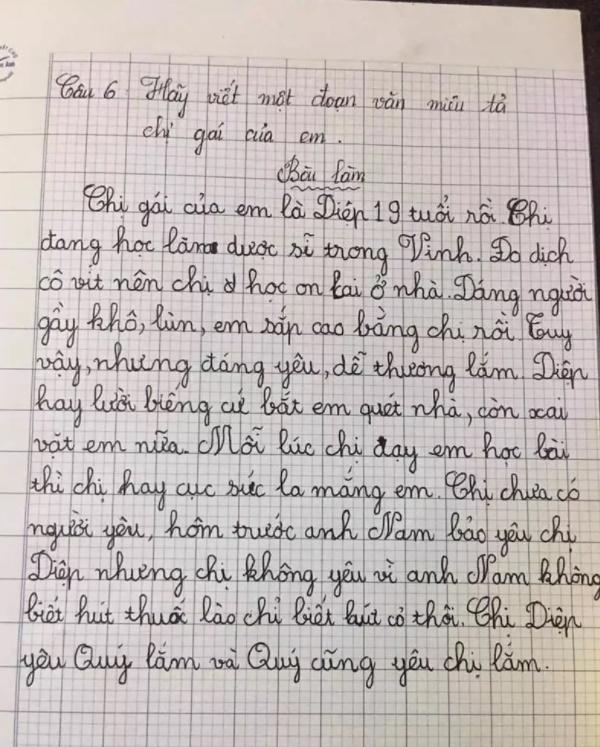 Câu 6 Hãy viết một đoạn văn miêu tả
chị gái của em.
Bài làm
Chị gái của em là Diệp 19 tuổi rồi. Chị
đang học làm dược sĩ trong Vinh. Do dịch
cô vit nên chị học on lai ở nhà. Dáng người
gầy khô, lùn, em sắp cao bằng chị rồi. Tuy
vậy, nhưng đáng yêu, dễ thương lắm. Diệp
hay lười biếng cứ bắt em quét nhà, còn xai
vặt em nữa. Mỗi lúc chị dạy em học bài
thì chị hay cục súc la mắng em. Chị chưa có
người yêu, hôm trước anh Nam bảo yêu chị
Diệp nhưng chị không yêu vì anh Nam không
biết hút thuốc lào chỉ biết hút cỏ thôi. Chị Diệp
yêu Quý lắm và Quý cũng yêu chị lắm.